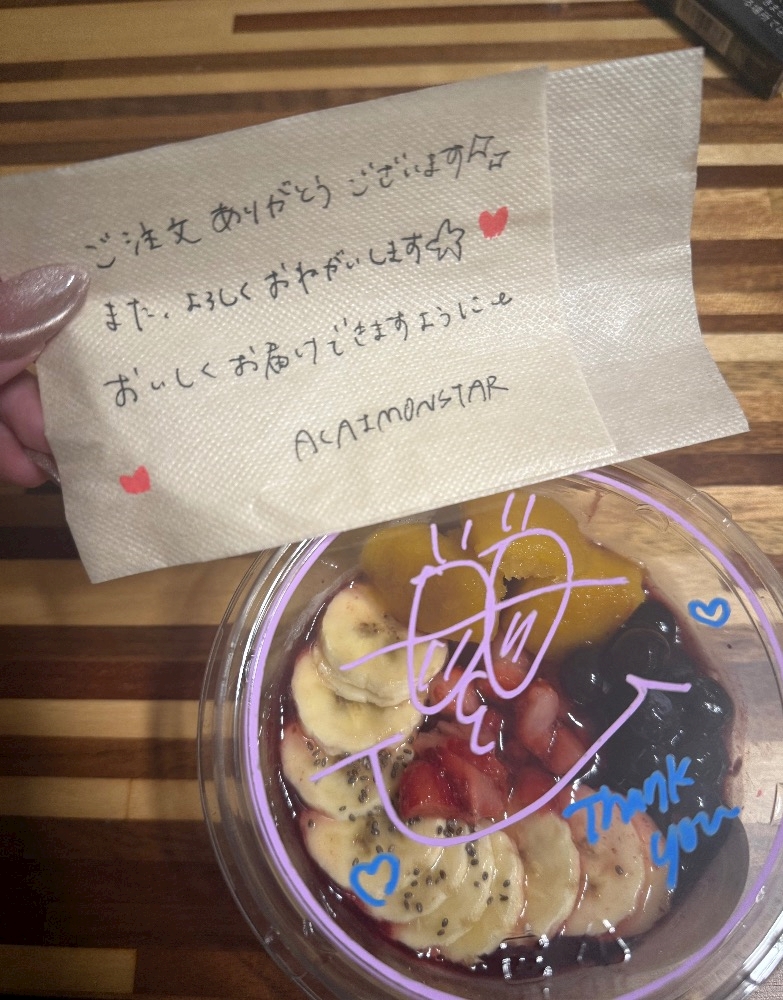 ご注文 ありがとう ございます
また、よろしく おねがいします
おいしく お届けできますように
ACAIMONSTAR
Thank
you